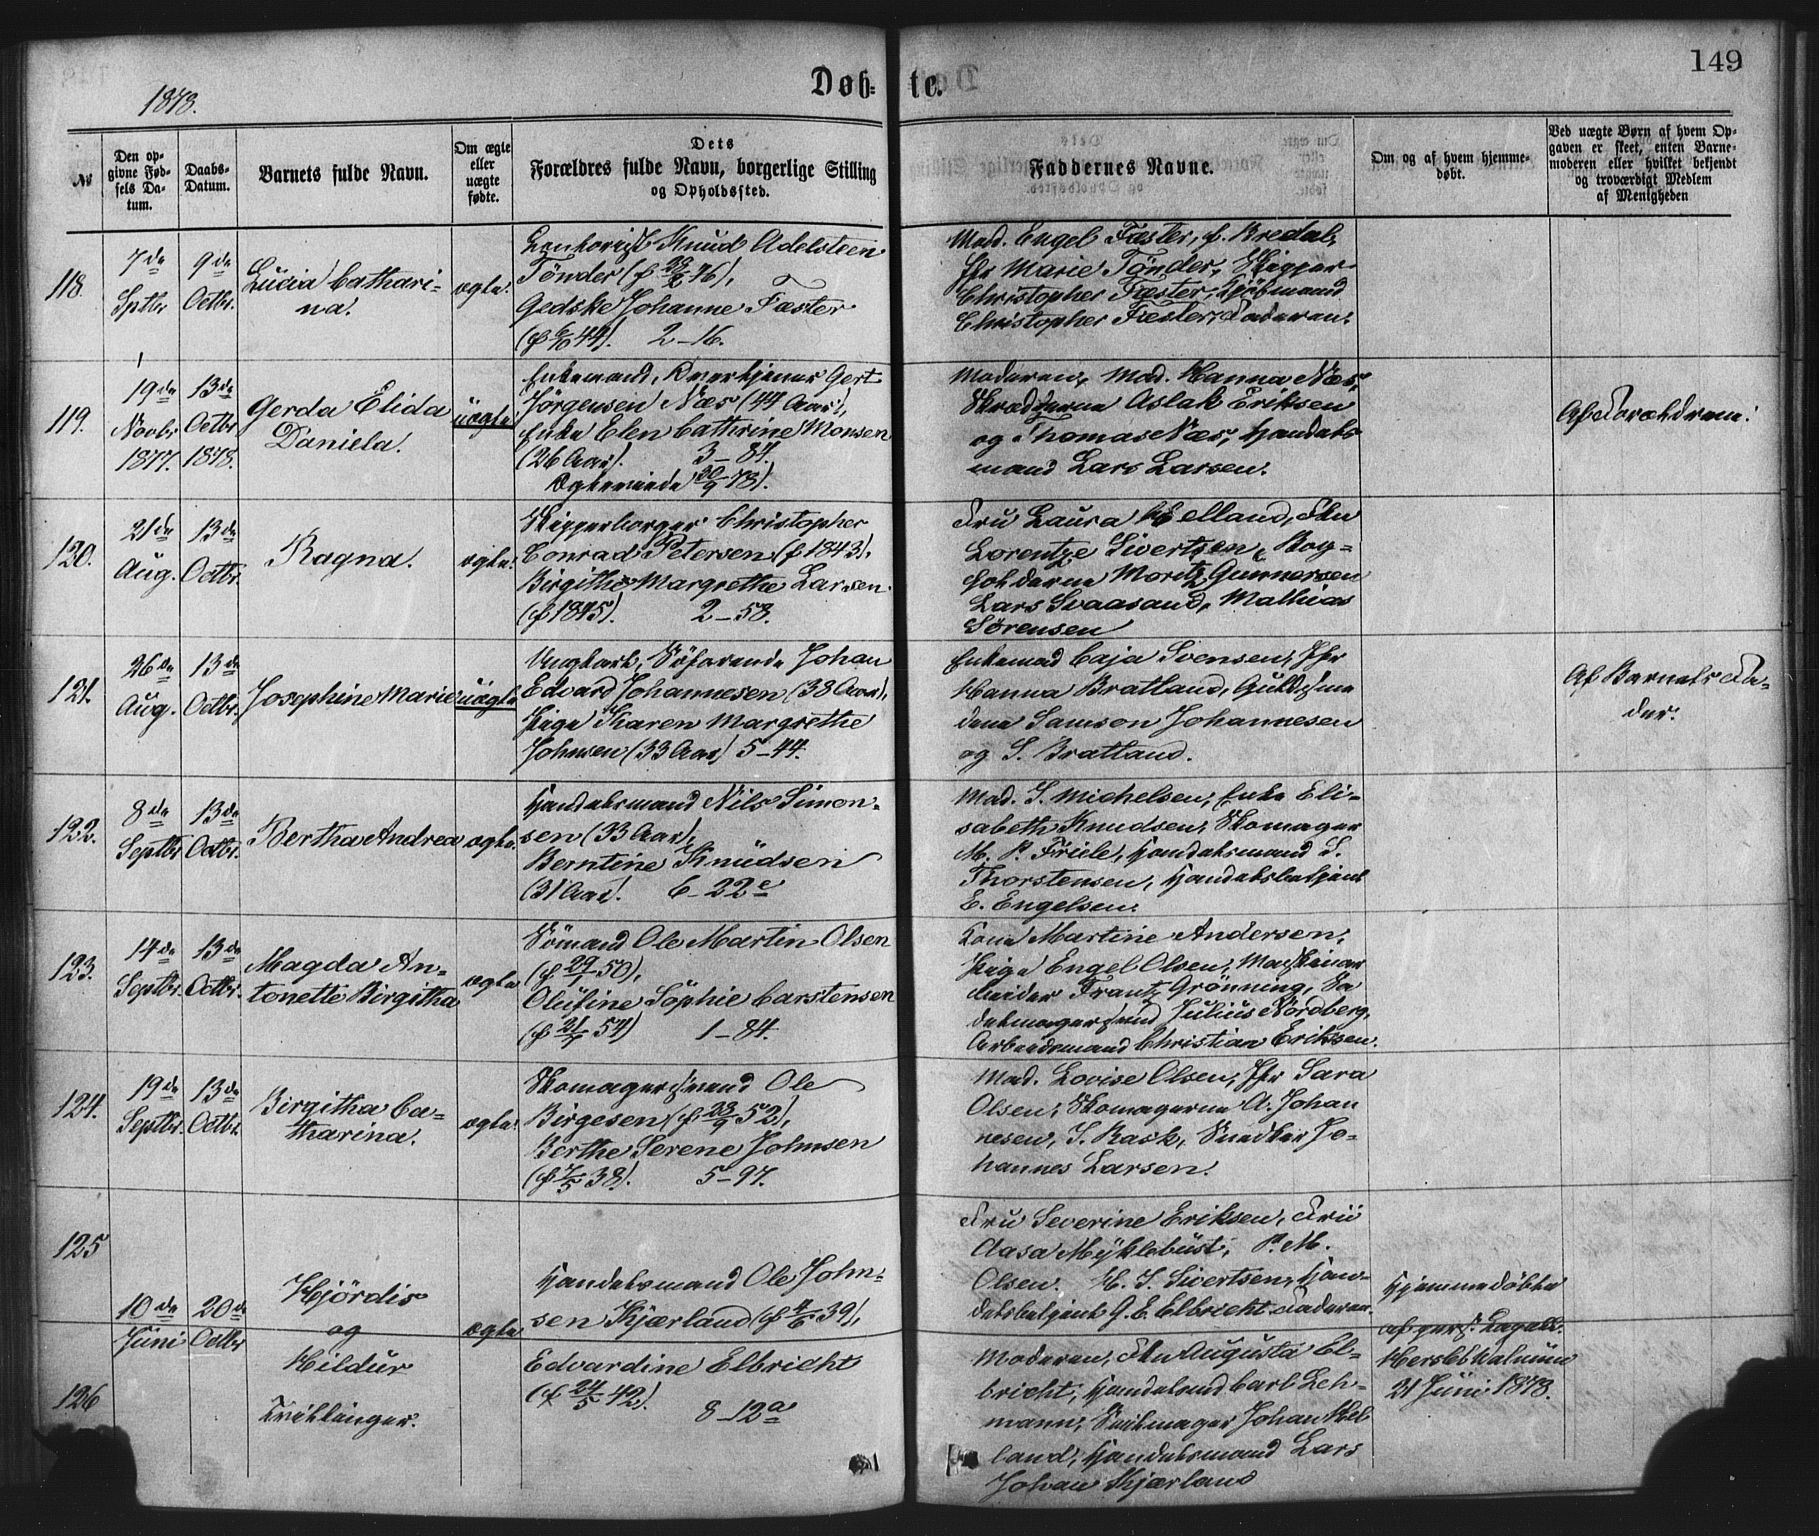 149
Døb-
te.
1878.
№
Den op-
givne Fød-
sels Da-
tum.
Daabs-
Datum.
Barnets fulde Navn.
Om ægte
eller
uægte
fødte.
Dets
Forældres fulde Navn, borgerlige Stilling
og Opholdssted.
Faddernes Navne.
Om og af hvem hjemme-
døbt.
Ved uægte Børn af hvem Op-
gaven er skeet, enten Barne-
moderen eller hvilket bekjendt
og troværdigt Medlem
af Menigheden
118.
7de
Sptbr
9de
Octbr.
Lucia Cathari-
na.
ægte.
Knud Adelsteen
Tönder (f 76),
Gedske Johanne Fæster
(f 6/10 44). 2-16.
Mad. Engel Fæster, f. Bredal,
Jfr Marie Tönder, Skipper
Christopher Fæster, Kjöbmand
Christopher Fæster, Faderen.
119.
19de
Novbr
1877.
13de
Octbr
1878.
Gerda Elida
Daniela.
uægte
Enkemand, Gert
Jörgensen Næs (44 Aar),
Enke Elen Cathrine Monsen
(26 Aar). 3-84.
Ægteviede 20/9 78).
Moderen, Mad. Hanna Næs,
Skrædderne Aslak Eriksen
og Thomas Næs, Handels
mand Lars Larsen.
Af Forældrene.
120.
21de
Aug.
13de
Octbr.
Ragna.
ægte.
Skipperborger Christopher
Conrad Petersen (f 1843),
Birgithe Margrethe Larsen
(f 1845). 2-58.
Fru Laura Helland, Frk
Lorentze Sivertsen, Bog-
holderne Moritz Gunnersen
Lars Svaasand, Mathias
Sörensen
121.
26de
Aug.
13de
Octbr.
Josephine Marie
uægte
Ungkarl, Söfarende Johan
Edvard Johannesen (38 Aar),
Pige Karen Margrethe
Johnsen (33 Aar) 5-44.
Enkemad Caja Svensen, Jfr
Hanna Bratland, Guldsme
dene Samson Johannesen
og S. Bratland.
Af Barnets Fa-
der.
122.
8de
Septbr
13de
Octbr.
Bertha Andrea
ægte.
Handelsmand Nils Simon-
sen (33 Aar),
Berntine Knudsen
(31 Aar). 6-22c
Mad. J. Michelsen, Enke Eli-
sabeth Knudsen, Skomager
M. P. Friele, Handelsmand S.
Thorstensen, Handelsbetjent
E. Engelsen.
123.
14de
Septbr.
13de
Octbr.
Magda An-
tonette Birgitha
ægte
Sömand Ole Martin Olsen
(f 50),
Olufine Sophie Carstensen
(f 54) 1-84.
Kone Martine Andersen,
Pige Engel Olsen, Maskinar
beider Frantz Grönning, Sa
delmagersvend Julius Nordberg,
Arbeidsmand Christian Eriksen.
124.
19de
Septbr.
13de
Octbr.
Birgitha Ca-
tharina.
ægte.
Skomagersvend Ole
Birgesen (f 23/9 52),
Berthe Serene Johnsen
(f 7/5 38). 5-97.
Mad. Lovise Olsen, Jfr Sara
Olsen, Skomagerne A. Johan
nesen, J. Rask, Snedker Jo-
hannes Larsen.
125
10de
Juni
20de
Octbr
Hjördis
og
Hildur
Tvillinger.
ægte
Handelsmand Ole John-
sen Kjærland (f 39),
Edvardine Elbricht
(f 24/5 42). 8-12a
Fru Severine Eriksen, Fru
Aasa Myklebust, P. M.
Olsen. H. S. Sivertsen, Han-
delsbetjent G. E. Elbricht. Faderen.
Hjemmedöbte
af
Herslebb Walnum
21 Juni 1878.
126
Moderen, Frk Augusta El-
bricht, Handelsmd Carl Leh-
mann, Seilmager Johan Hel
land, Handelsmand Lars
Johan Kjærland